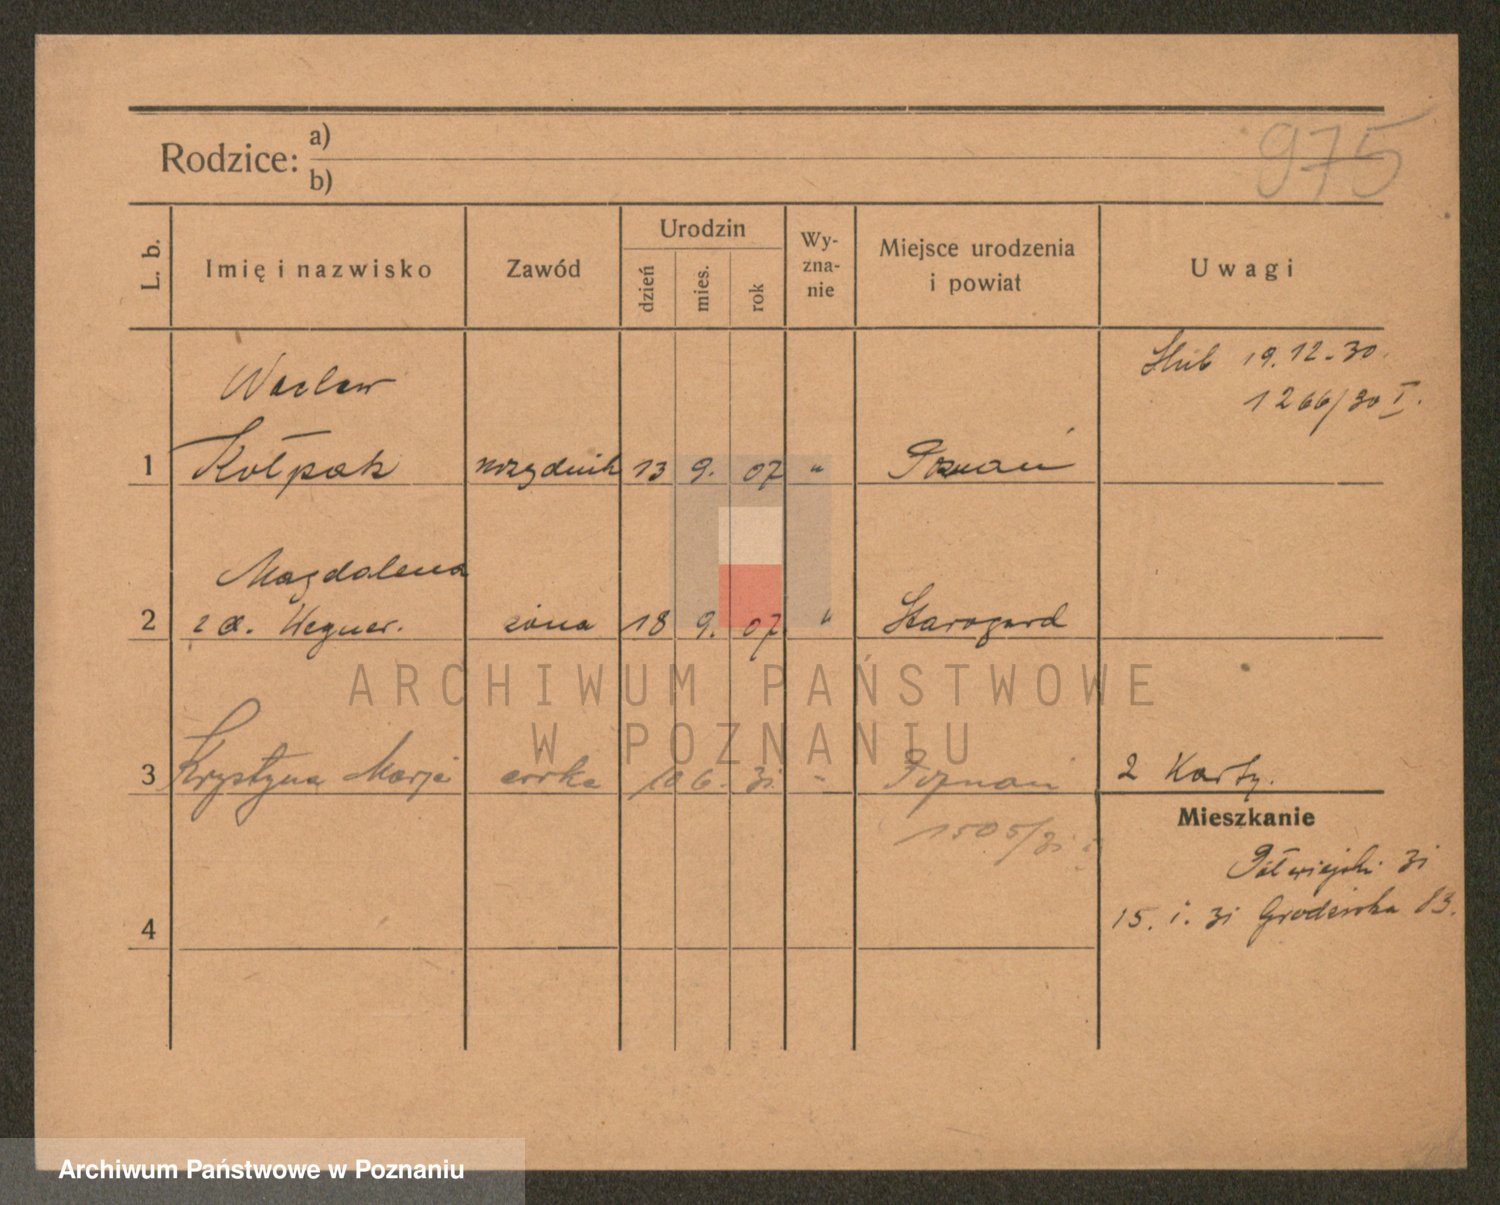 975
Rodzice: a)
b)
L. b. Imię i nazwisko Zawód Urodzin dzień mies. rok Wy-zna-nie Miejsce urodzenia i powiat Uwagi
Ślub 19.12.30.
1266/30 I.
Wacław
1 Kołpak urzędnik 13 9. 07 " Poznań
Magdalena
2 z d. Wegner. żona 18 9. 07 " Starogard
3 Krystyna Marja córka 10 6. 31 " Poznań 2 Karty.
1505/31
Mieszkanie
Półwiejska 31
15. 1. 31 Grodziska 13.
4
ARCHIWUM PAŃSTWOWE
W POZNANIU
Archiwum Państwowe w Poznaniu